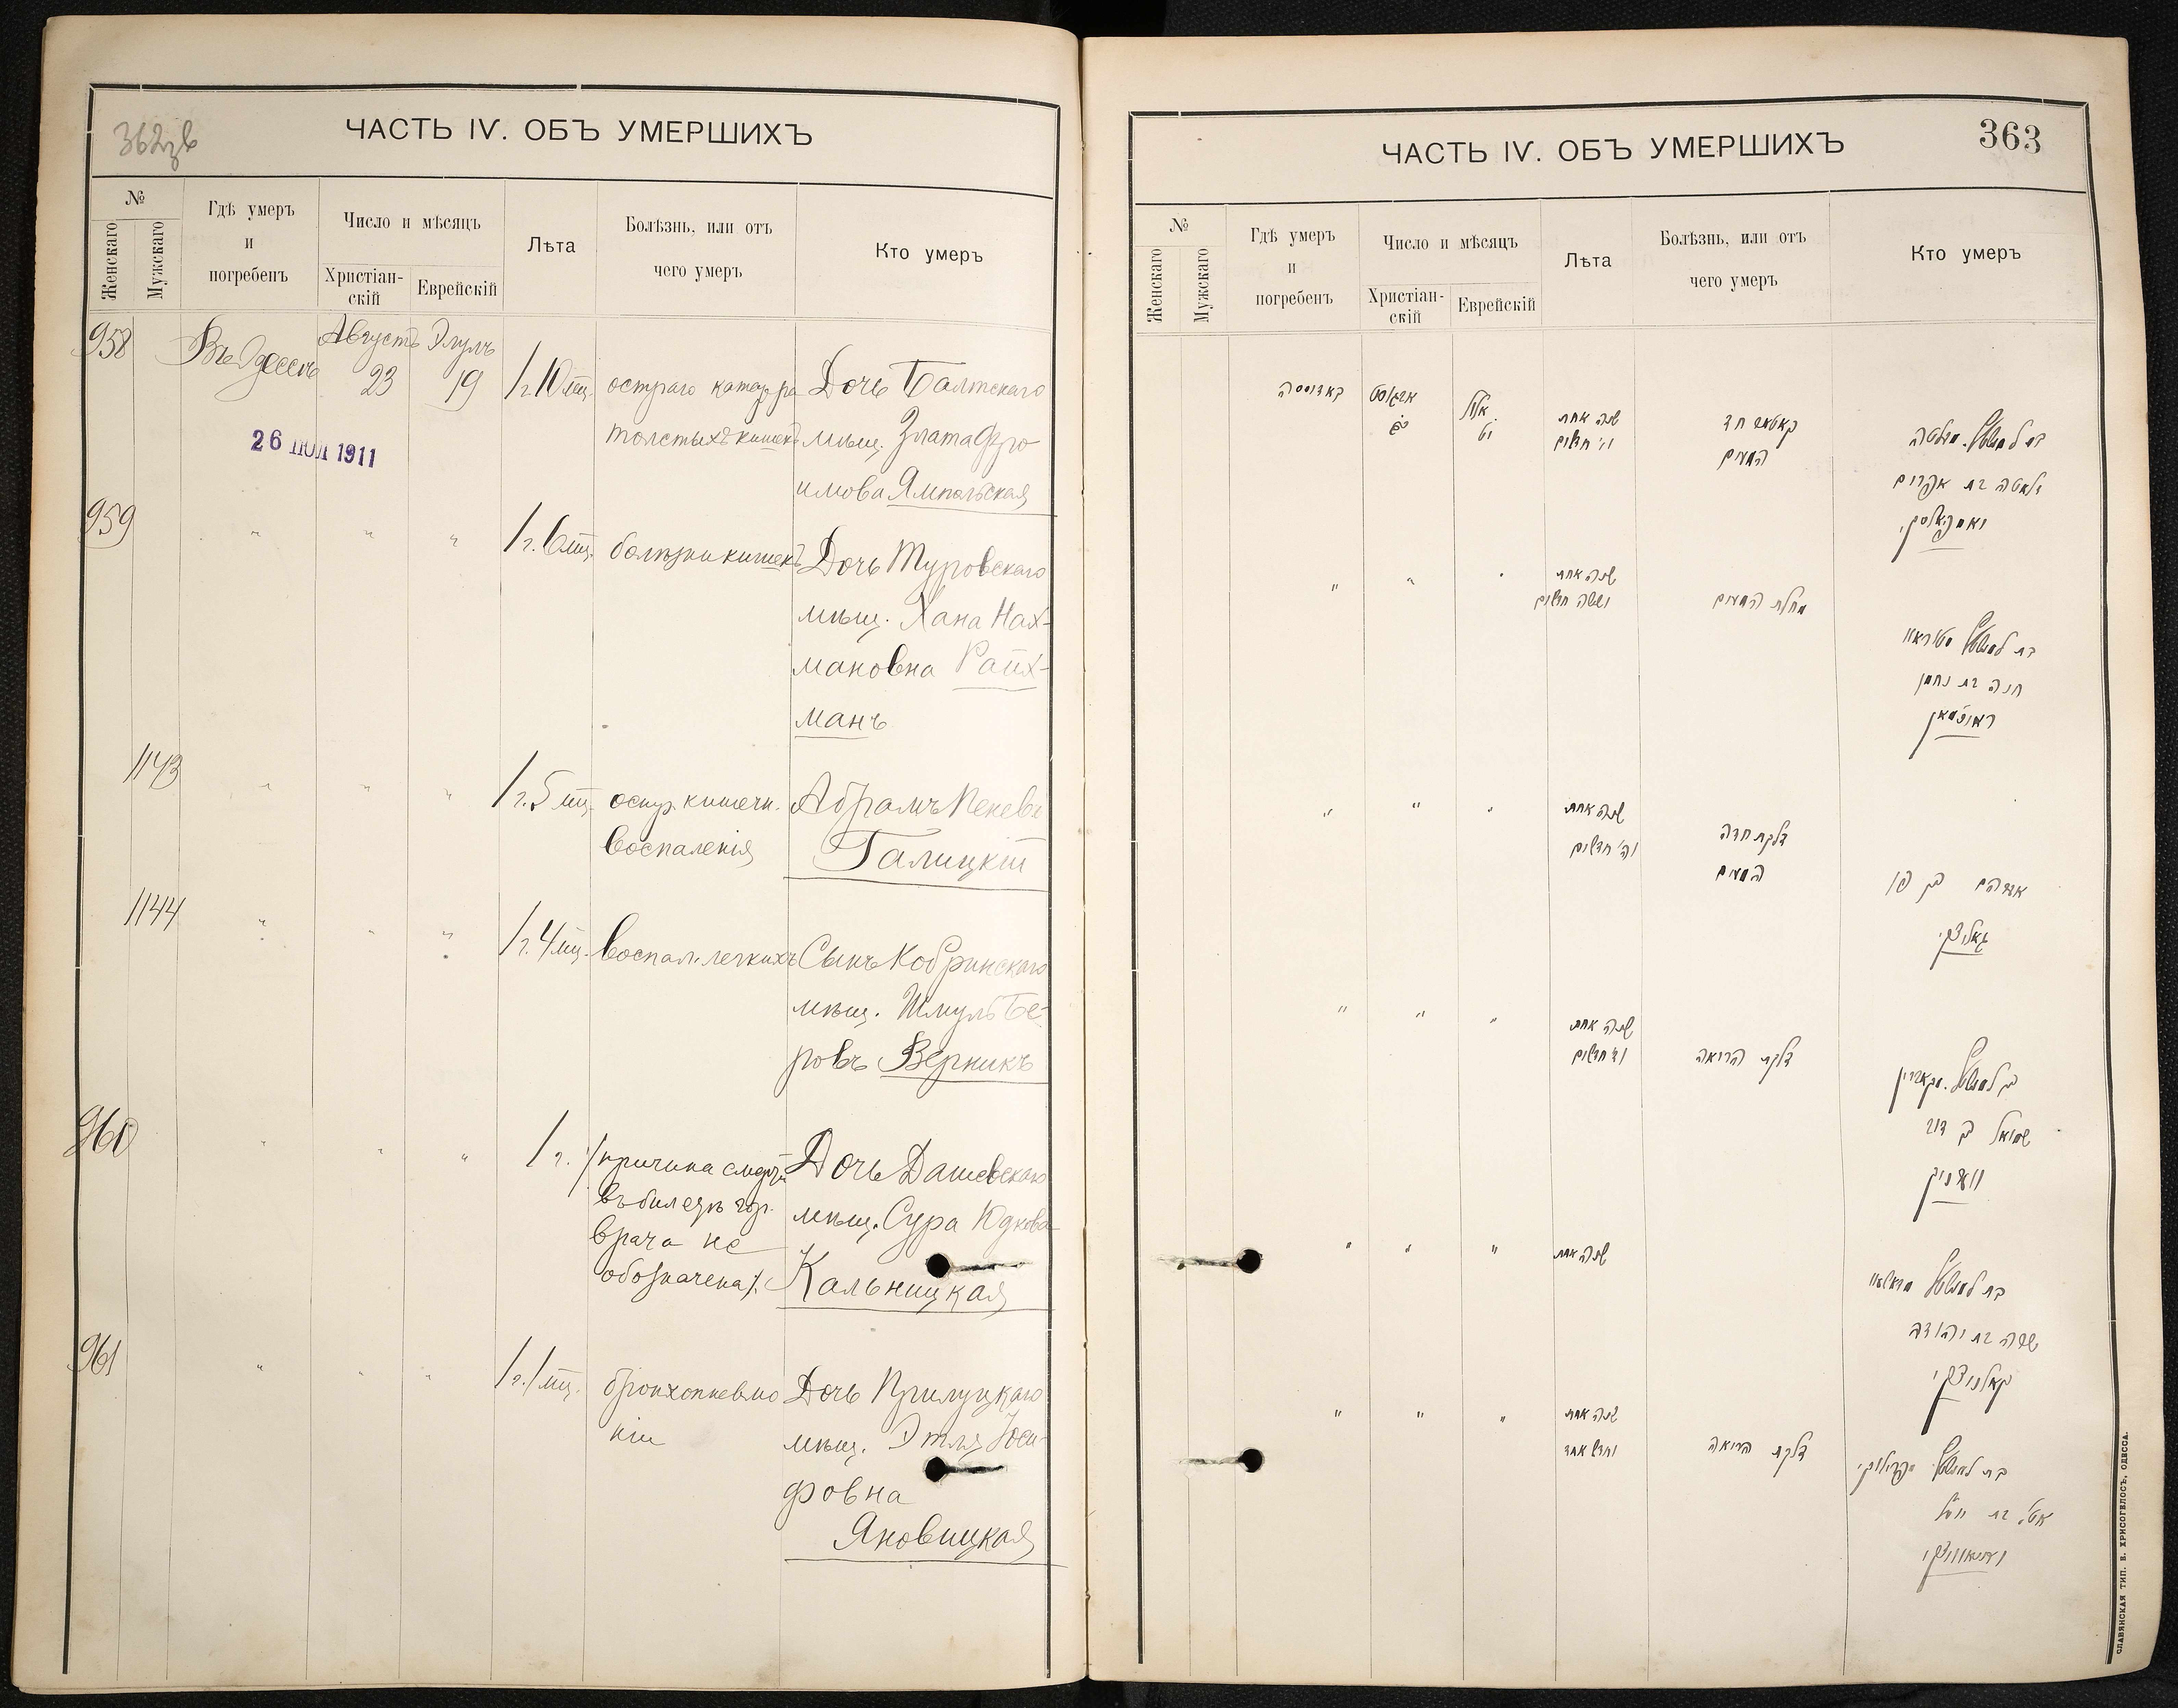 362 зв
ЧАСТЬ IV. ОБЪ УМЕРШИХЪ
№
Женскаго
Мужскаго
Гдѣ умеръ
и
погребенъ
Число и мѣсяцъ
Христіан-
скій
Еврейскій
Лѣта
Болѣзнь, или отъ
чего умеръ
Кто умеръ
958
Въ Одессѣ
Августъ Элулъ
23 19
1 г. 10 мц.
остраго катарра
толстыхъ кишекъ
Дочь Балтскаго
мѣщ. Злата Фро
имова Ямпольская
26 ІЮЛ 1911
959
" " "
1 г. 6 мц.
болѣзни кишекъ
Дочь Туровскаго
мѣщ. Хана Нах-
мановна Райх-
манъ
1143
" " "
1 г. 5 мц.
остр. кишечн.
воспаленія
Абрамъ
Галицкій
1144
" " "
1 г. 4 мц.
воспал. легкихъ
Сынъ Кобринскаго
мѣщ. Шмуль Бе-
ровъ Верникъ
960
" " "
1 г.
/причина смерти
въ билетѣ гор.
врача не
обозначена/.
Дочь Дашевскаго
мѣщ. Сура Юдкова
Кальницкая
961
" " "
1 г. 1 мц.
бронхопневмо
ніи
Дочь Прилуцкаго
мѣщ. Этля Іоси-
фовна
Яновицкая
363
ЧАСТЬ IV. ОБЪ УМЕРШИХЪ
№
Женскаго
Мужскаго
Гдѣ умеръ
и
погребенъ
Число и мѣсяцъ
Христіан-
скій
Еврейскій
Лѣта
Болѣзнь, или отъ
чего умеръ
Кто умеръ
באדעססה
אויגוסט
אלול
כג
יט
שנה אחת
וי' חדשים
קאטאר חד
המעים
זלאטה בת אפרים
יאמפאלסקי
" " "
שנה אחת
וששה חדשים
מחלת המעים
חנה בת נחמן
רייכמאן
" " "
שנה אחת
וה' חדשים
דלקת חדה
המעים
אברהם בן
גאליצקי
" " "
שנה אחת
וד' חדשים
דלקת הריאה
שמואל בן דוב
ווערניק
" " "
שנה אחת
שרה בת יהודה
קאלניצקי
" " "
שנה אחת
וחדש אחד
דלקת הריאה
אטל בת יוסף
יאנאוויצקי
СЛАВЯНСКАЯ ТИП. Е. ХРИСОГЕЛОСЪ, ОДЕССА.